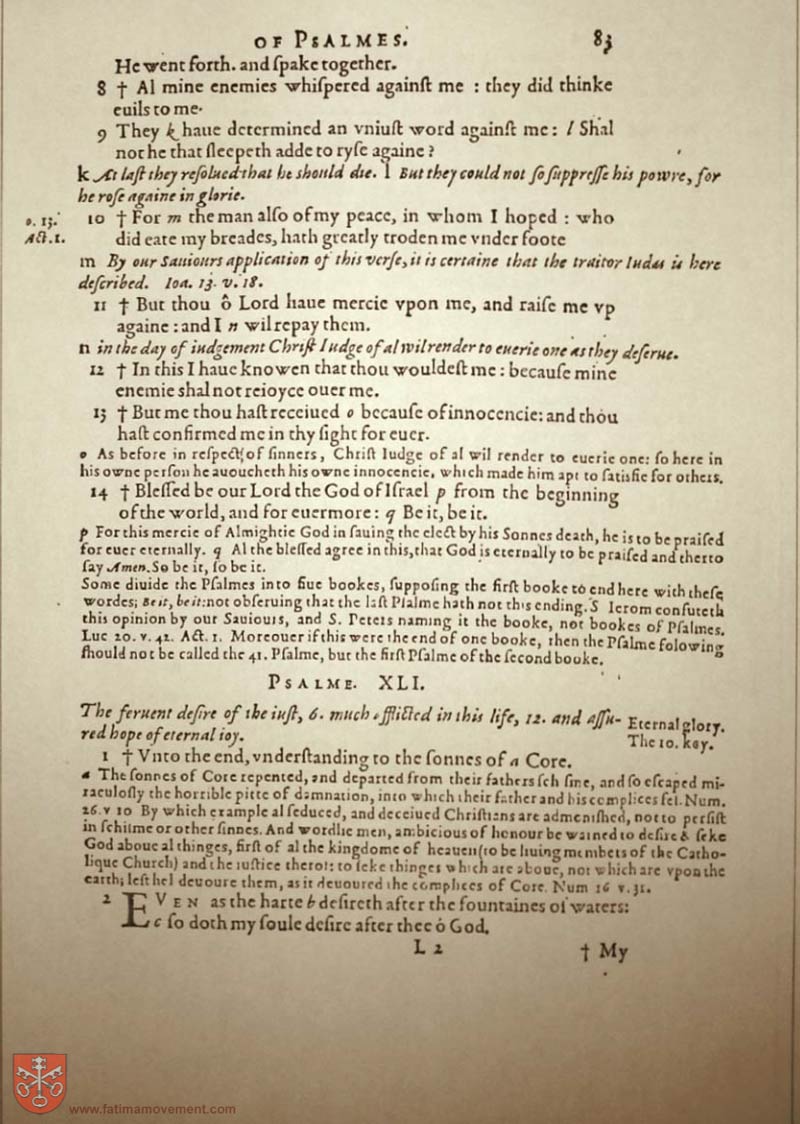 OF PSALMES. 83
He went forth. and ſpake together.
8 † Al mine enemies whiſpered againſt me : they did thinke
euils to me.
9 They k haue determined an vniuſt word againſt me: l Shal
not he that ſleepeth adde to ryſe againe?
k At laſt they reſolued that he should die. l But they could not ſo ſuppreſſe his powre, for
he roſe againe in glorie.
o. 13.
Act. 1.
10 † For m the man alſo of my peace, in whom I hoped : who
did eate my breades, hath greatly troden me vnder foote
m By our Sauiours application of this verſe, it is certaine that the traitor Iudas is here
deſcribed. Ioa. 13. v. 18.
11 † But thou ô Lord haue mercie vpon me, and raiſe me vp
againe : and I n wil repay them.
n in the day of iudgement Chriſt Iudge of al wil render to euerie one as they deſerue.
12 † In this I haue knowen that thou wouldeſt me : becauſe mine
enemie shal not reioyce ouer me.
13 † But me thou haſt receiued o becauſe of innocencie: and thou
haſt confirmed me in thy ſight for euer.
o As before in reſpect of ſinners, Chriſt Iudge of al wil render to euerie one: ſo here in
his owne perſon he auoucheth his owne innocencie, which made him apt to ſatisfie for others.
14 † Bleſſed be our Lord the God of Iſrael p from the beginning
of the world, and for euermore : q Be it, be it.
p For this mercie of Almightie God in ſauing the elect by his Sonnes death, he is to be praiſed
for euer eternally. q Al the bleſſed agree in this, that God is eternally to be praiſed and therto
ſay Amen. So be it, ſo be it.
Some diuide the Pſalmes into fiue bookes, ſuppoſing the firſt booke to end here with theſe
wordes; Be it, be it: not obſeruing that the laſt Pſalme hath not this ending. S Ierom confuteth
this opinion by our Sauiours, and S. Peters naming it the booke, not bookes of Pſalmes.
Luc 20. v. 42. Act. 1. Moreouer if this were the end of one booke, then the Pſalme folowing
ſhould not be called the 41. Pſalme, but the firſt Pſalme of the ſecond booke.
PSALME. XLI.
The feruent deſire of the iuſt, 6. much afflicted in this life, 12. and aſſu-
red hope of eternal ioy.
Eternal glory.
The 10. key.
1 † Vnto the end, vnderſtanding to the ſonnes of a Core.
a The ſonnes of Core repented, and departed from their fathers ſchiſme, and ſo eſcaped mi-
raculouſly the horrible pitte of damnation, into which their father and his complices fel. Num.
26. v 10 By which example al ſeduced, and deceiued Chriſtians are admoniſhed, not to perſiſt
in ſchiſme or other ſinnes. And wordlie men, ambicious of honour be warned to deſire & ſeke
God aboue al thinges, firſt of al the kingdome of heauen (to be liuing members of the Catho-
lique Church) and the iuſtice therof: to ſeke thinges which are aboue, not which are vpon the
earth; leſt hel deuoure them, as it deuoured the complices of Core. Num 16 v. 31.
2 EVEN as the harte b deſireth after the fountaines of waters:
c ſo doth my ſoule deſire after thee ô God.
L 2 † My
www.fatimamovement.com